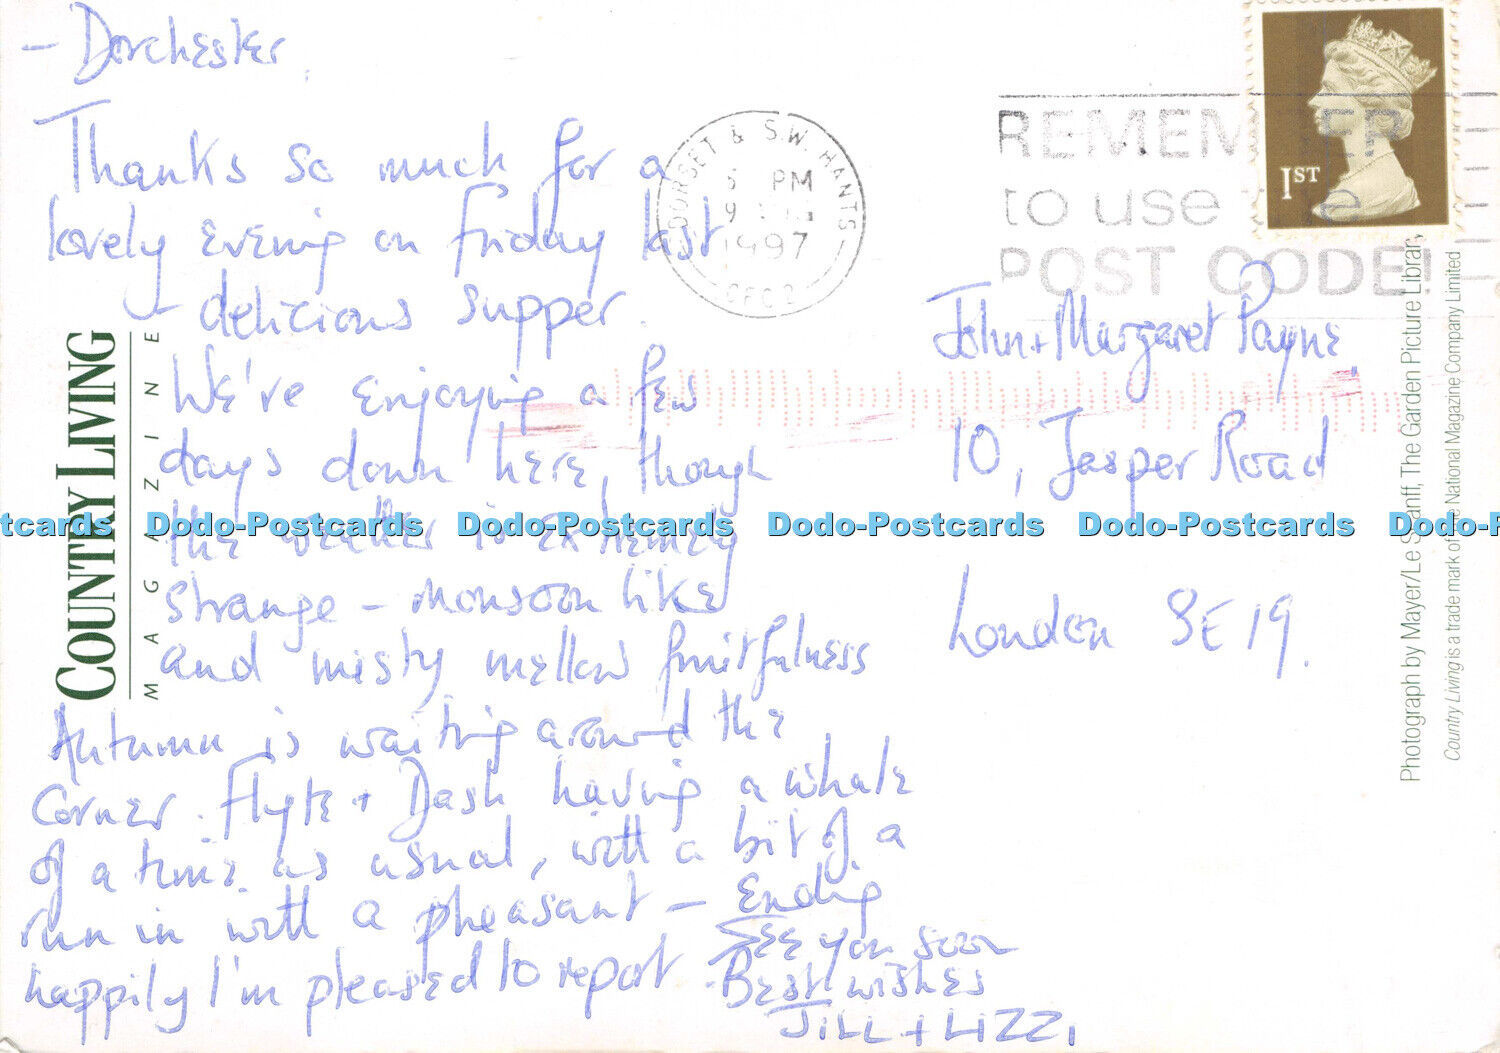 – Dorchester.
Thanks so much for a
lovely evening on Friday last
– delicious supper.
We're enjoying a few
days down here, though
the weather is extremely
strange – monsoon like
and misty mellow fruitfulness
Autumn is waiting around the
corner. Flyte + Dash having a whale
of a time as usual, with a bit of a
run in with a pheasant – Ending
happily I'm pleased to report.
See you soon
Best wishes
JILL + LIZZI
COUNTRY LIVING
MAGAZINE
DORSET & S.W. HANTS
PM
9
1997
REMEMBER
to use the
POST CODE!
1ST
John + Margaret Payne
10, Jasper Road
London SE19.
Photograph by Mayer/Le Scanff, The Garden Picture Library
Country Living is a trade mark of the National Magazine Company Limited
tcards Dodo-Postcards Dodo-Postcards Dodo-Postcards Dodo-Postcards Dodo-P